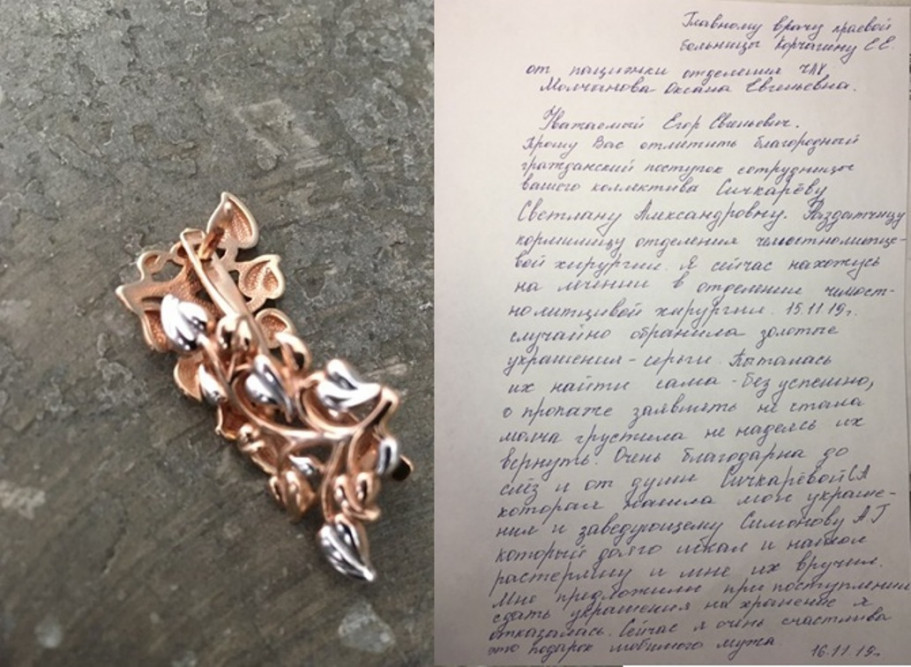 Главному врачу краевой
больницы Корчагину Е.Е.
от пациентки отделения ЧЛХ
Молчанова Оксана Евгеньевна.
Уважаемый Егор Евгеньевич.
Прошу Вас отметить благородный
гражданский поступок сотрудницы
вашего коллектива Сичкарёву
Светлану Александровну. Раздатчицу
кормилицу отделения челюстнолице-
вой хирургии. Я сейчас нахожусь
на лечении в отделении челюст-
нолицевой хирургии. 15.11.19г.
случайно обранила золотые
украшения - серьги. Пыталась
их найти сама - безуспешно,
о пропаже заявлять не стала
молча грустила не надеясь их
вернуть. Очень благодарна до
слёз и от души Сичкарёвой СА
которая нашла мои украше-
ния и заведующему Симонову АГ
который долго искал и нашол
растеряшу и мне их вручил.
Мне предложили при поступлении
сдать украшения на хранение я
отказалась. Сейчас я очень счастлива
это подарок любимого мужа
16.11.19г.